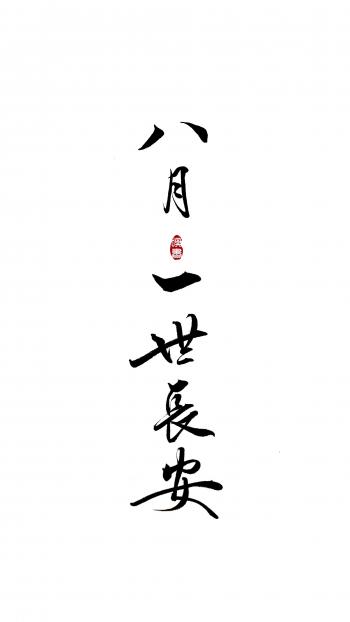 八月
一世長安